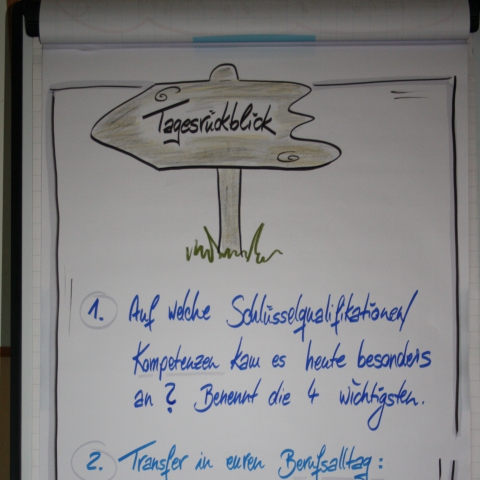 Tagesrückblick
1. Auf welche Schlüsselqualifikationen/
Kompetenzen kam es heute besonders
an? Benennt die 4 wichtigsten.
2. Transfer in euren Berufsalltag: